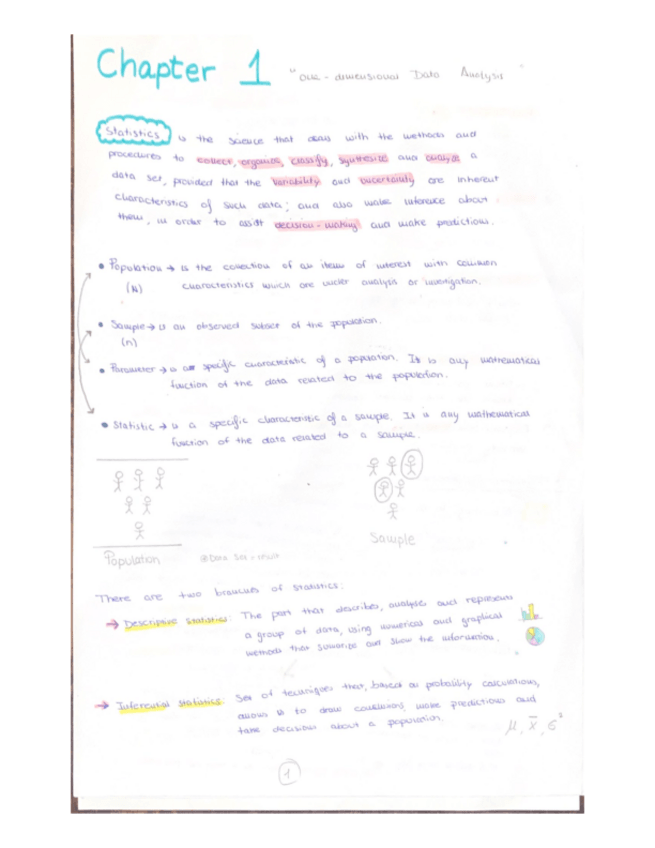 Chapter 1 "One-dimensional Data Analysis"
Statistics is the science that deals with the methods and
procedures to collect, organize, classify, synthesize and analyze a
data set, provided that the variability and uncertainty are inherent
characteristics of such data; and also make inference about
them, in order to assist decision-making and make predictions.
• Population → is the collection of an items of interest with common
(N) characteristics which are under analysis or investigation.
• Sample → is an observed subset of the population.
(n)
• Parameter → is a specific characteristic of a population. It is any mathematical
function of the data related to the population.
• Statistic → is a specific characteristic of a sample. It is any mathematical
function of the data related to a sample.
Population
Data Set
Sample
There are two branches of statistics:
→ Descriptive Statistics: The part that describes, analyse and represents
a group of data, using numerical and graphical
methods that summarize and show the information.
→ Inferential statistics: Set of techniques that, based on probability calculations,
allows us to draw conclusions, make predictions and
take decisions about a population.
μ, x̄, σ²
1